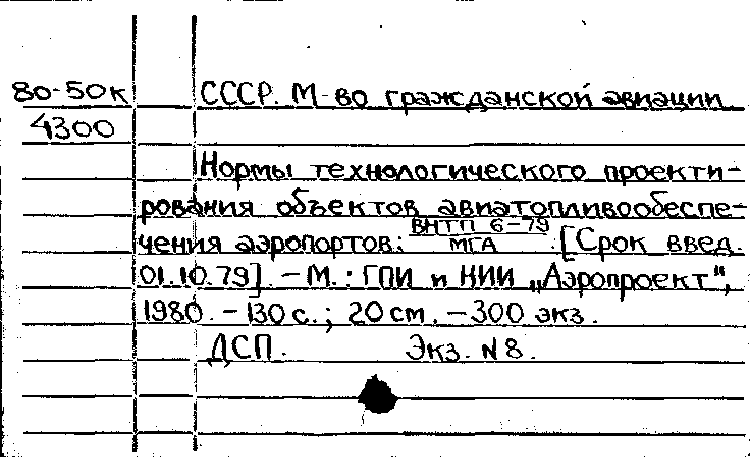 80-50к СССР. М-во гражданской авиации
4300
Нормы технологического проекти-
рования объектов авиатопливообеспе-
чения аэропортов: ВНТП 6-79/МГА. [Срок введ.
01.10.79]. - М.: ГПИ и НИИ „Аэропроект",
1980. - 130 с.; 20 см. - 300 экз.
ДСП. Экз. N 8.